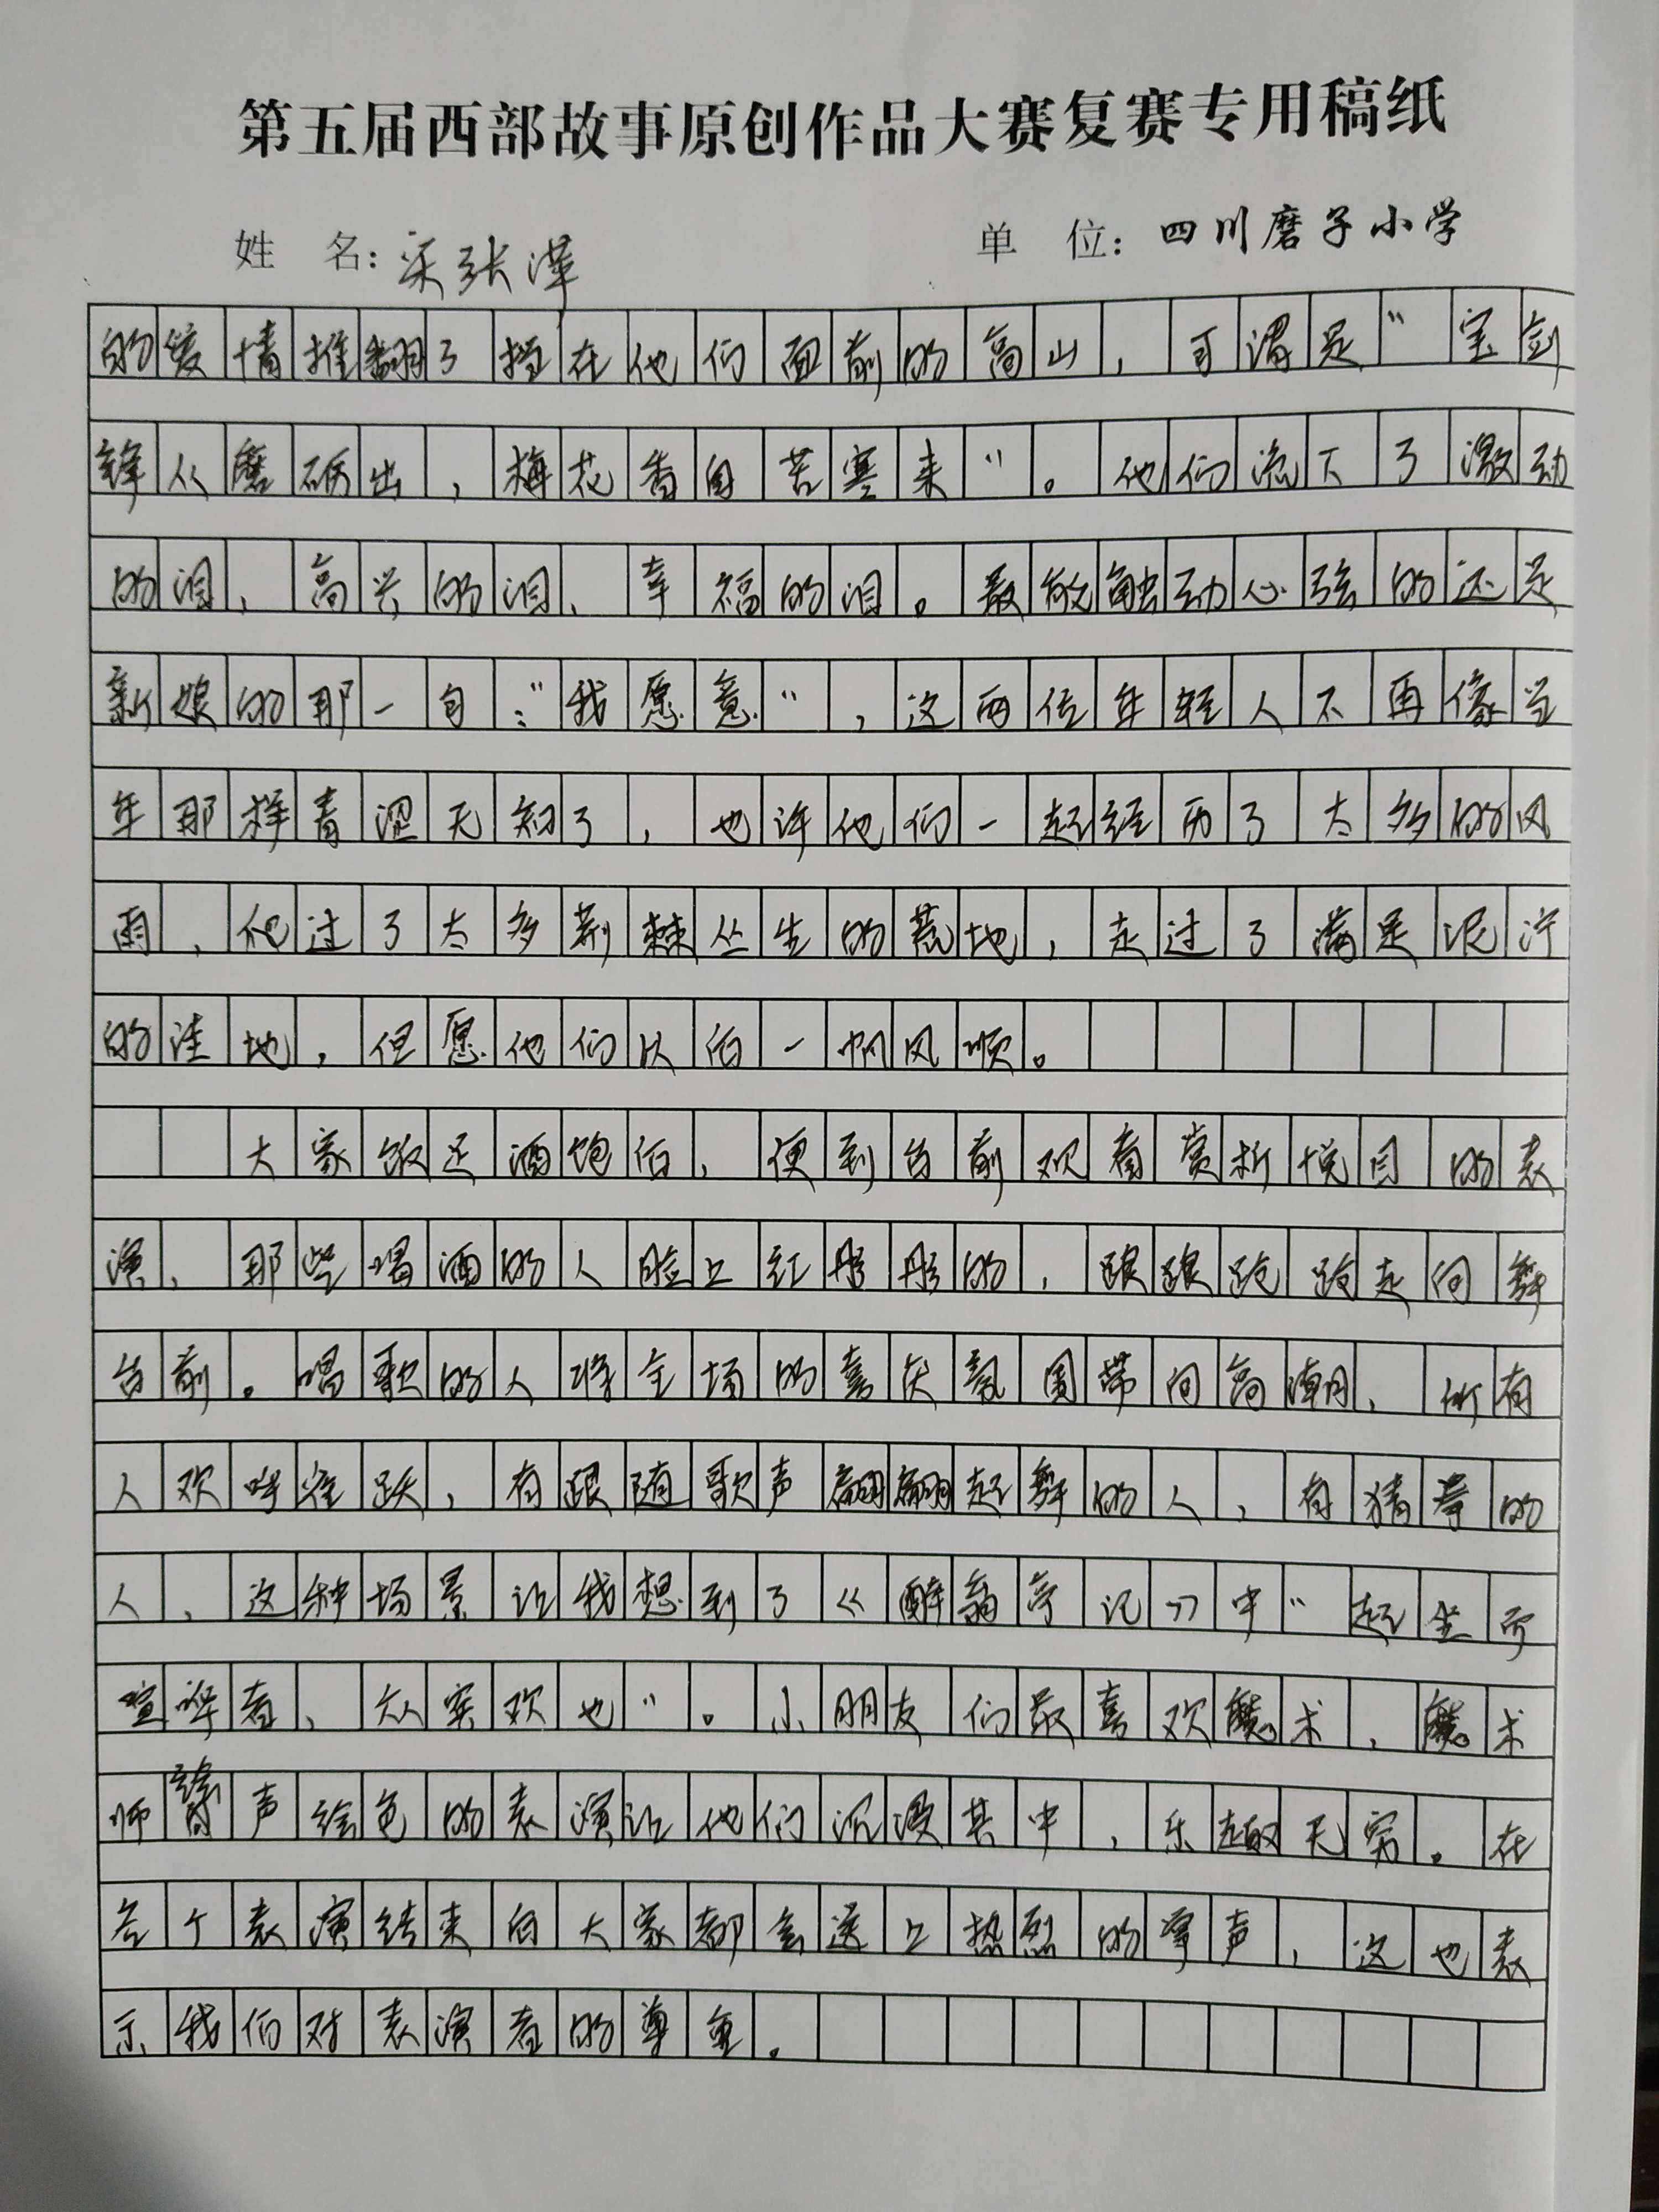 第五届西部故事原创作品大赛复赛专用稿纸
姓 名：张泽 单 位：四川磨子小学
的爱情推翻了挡在他们面前的高山，可谓是“宝剑
锋从磨砺出，梅花香自苦寒来”。他们流下了激动
的泪、高兴的泪、幸福的泪。最触动心弦的还是
新娘的那一句：“我愿意”，这两位年轻人不再像当
年那样青涩无知了，也许他们一起经历了太多的风
雨，过了太多荆棘丛生的荒地，走过了满是泥泞
的洼地，但愿他们以后一帆风顺。
大家饭足酒饱后，便到台前观看赏析悦目的表
演，那些喝酒的人脸上红彤彤的，踉踉跄跄走向舞
台前。唱歌的人将全场的喜庆氛围带向高潮，所有
人欢呼雀跃，有跟随歌声翩翩起舞的人，有猜拳的
人，这种场景让我想到了《醉翁亭记》中“起坐而
喧哗者，众宾欢也”。小朋友们最喜欢魔术，魔术
师声绘色的表演让他们沉浸其中，乐趣无穷。在
各个表演结束后大家都会送上热烈的掌声，这也表
示我们对表演者的尊重。